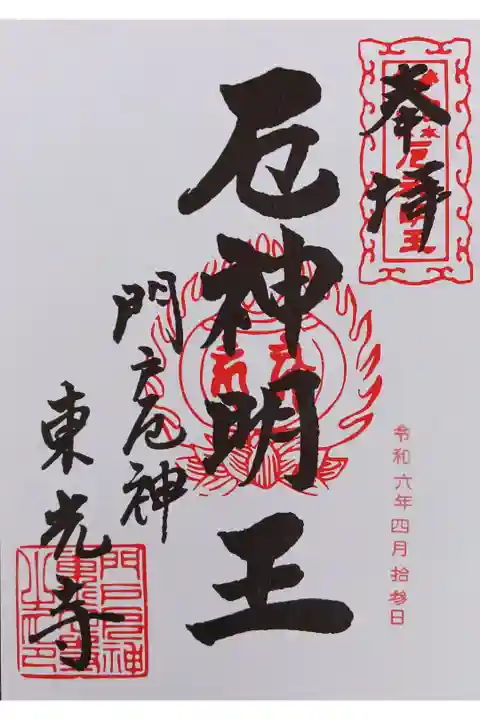 奉拝
厄神明王
門戸厄神
東光寺
令和六年四月拾参日